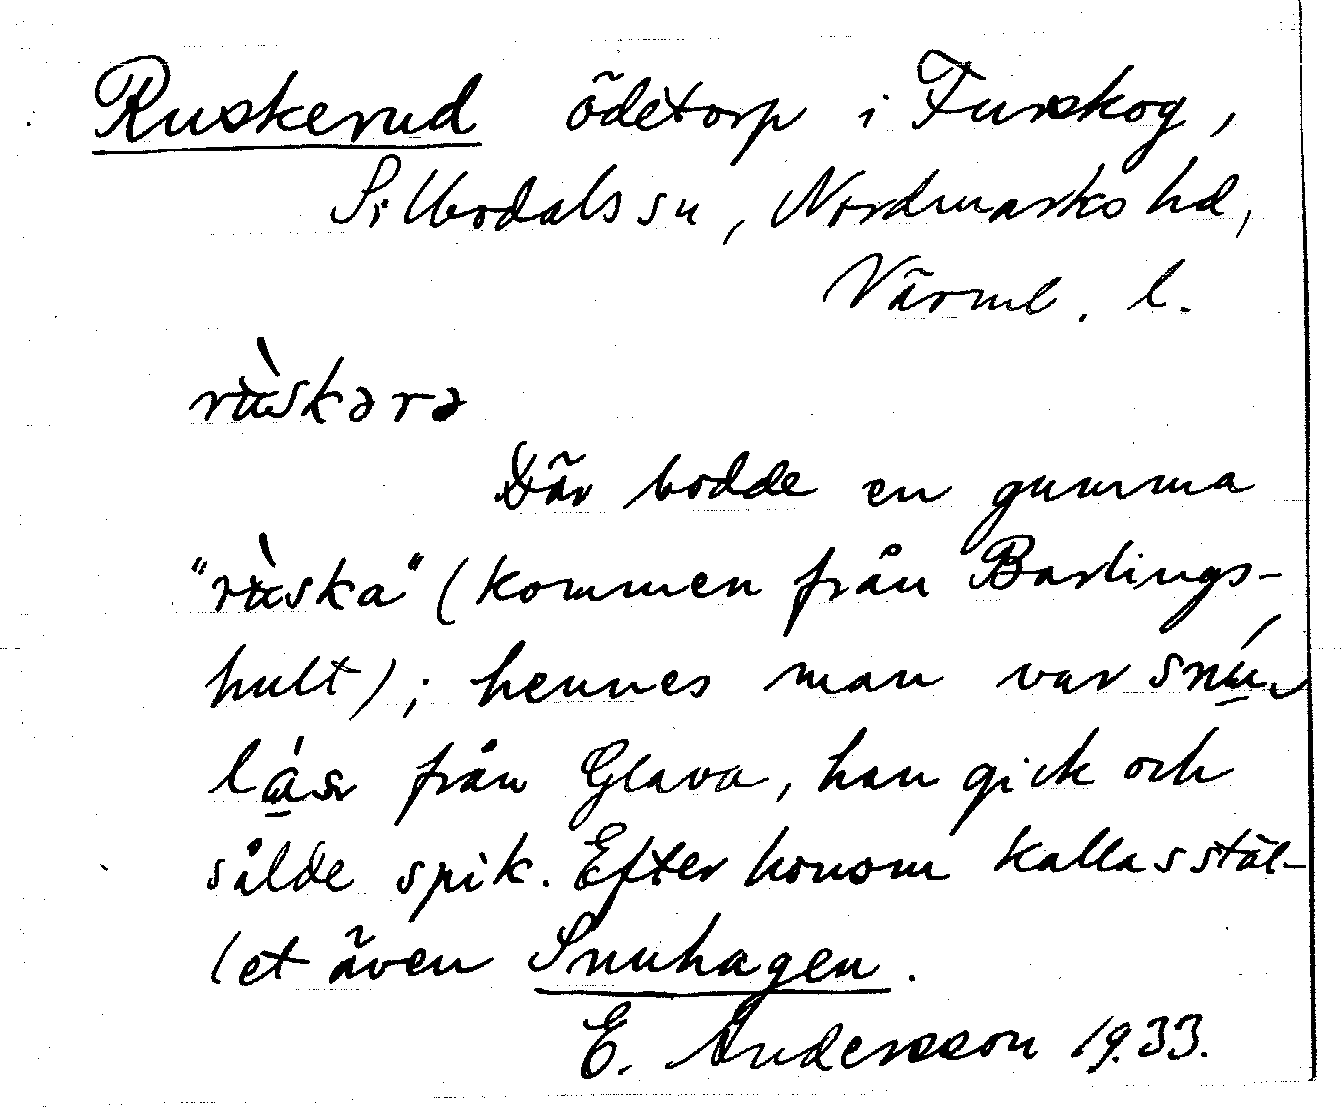 Ruskerud ödetorp i Furskog,
Silbodals sn, Nordmarks hd,
Värml. l.
rʉ̀skərə
Där bodde en gumma
"rʉ̀ska" (kommen från Barlings-
hult); hennes man var snú-
lás från Glava, han gick och
sålde spik. Efter honom kallas stäl-
let även Snuhagen.
E. Andersson 1933.